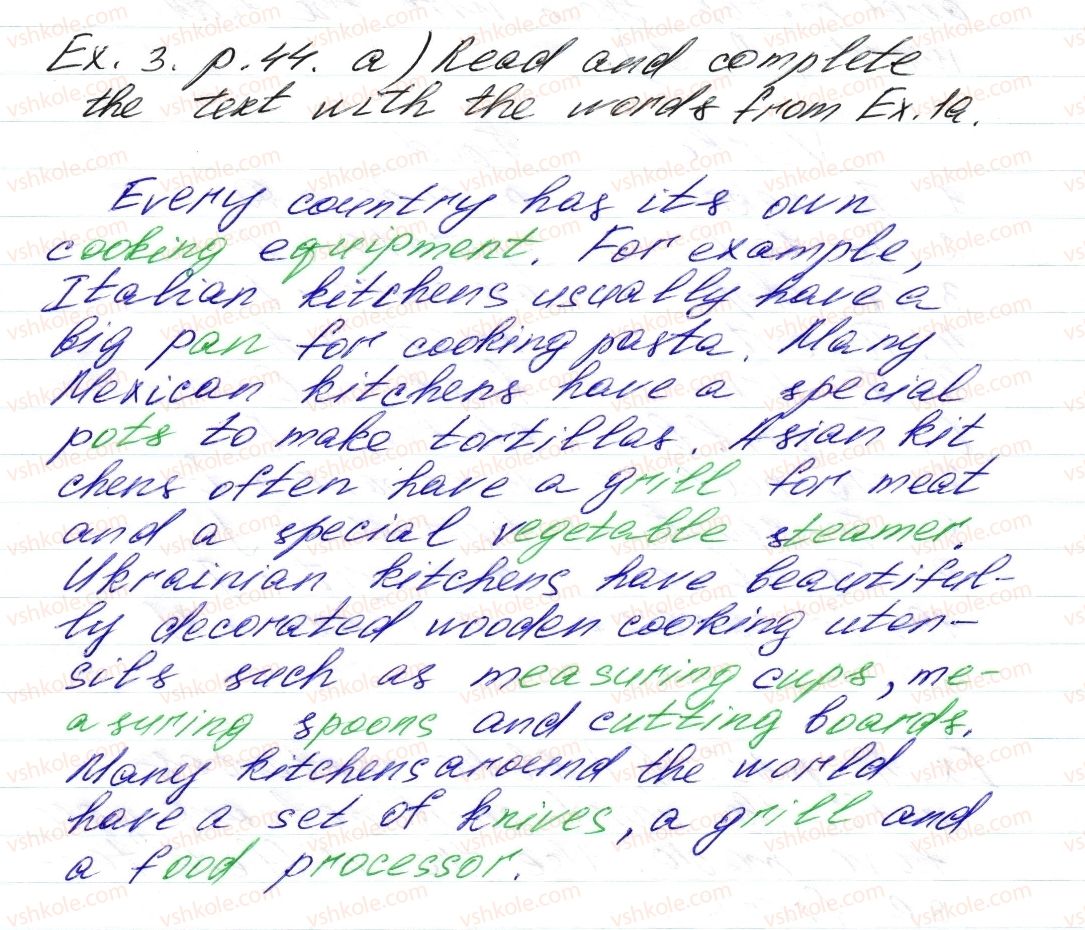 Ex. 3. p.44. a) Read and complete
the text with the words from Ex. 1a.
Every country has its own
cooking equipment. For example,
Italian kitchens usually have a
big pan for cooking pasta. Many
Mexican kitchens have a special
pots to make tortillas. Asian kit
chens often have a grill for meat
and a special vegetable steamer.
Ukrainian kitchens have beautiful-
ly decorated wooden cooking uten-
sils such as measuring cups, me-
asuring spoons and cutting boards.
Many kitchens around the world
have a set of knives, a grill and
a food processor.
vshkole.com